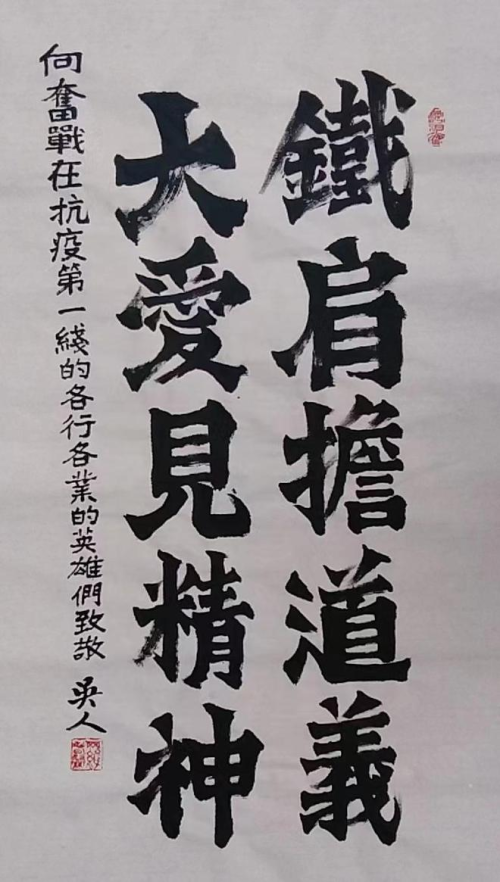 鐵肩擔道義
大愛見精神
向奮戰在抗疫第一綫的各行各業的英雄們致敬 吳人